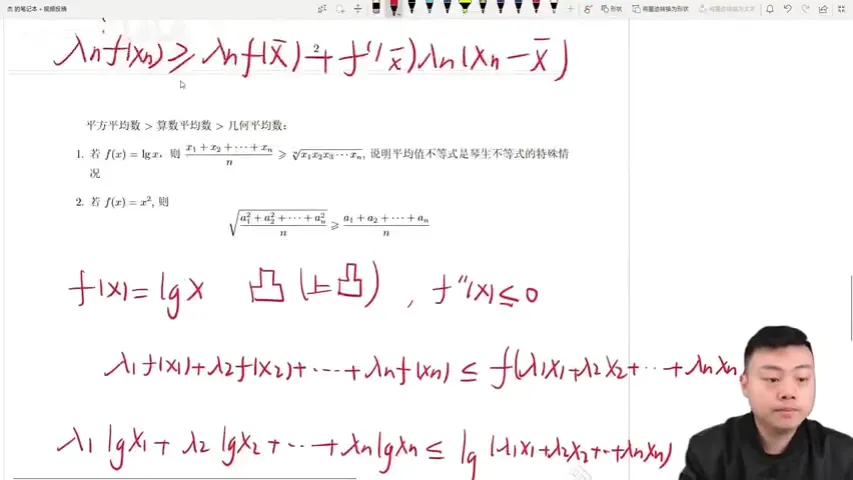 杰 的笔记本 • 视频投换
将墨迹转换为形状
λnf(xn) ≥ λnf(x̄) + f'(x̄)λn(xn − x̄)
平方平均数 > 算数平均数 > 几何平均数:
1. 若 f(x) = lg x, 则 (x₁ + x₂ + ⋯ + xₙ)/n ⩾ ⁿ√(x₁x₂x₃⋯xₙ), 说明平均值不等式是琴生不等式的特殊情
况
2. 若 f(x) = x², 则
√((a₁² + a₂² + ⋯ + aₙ²)/n) ⩾ (a₁ + a₂ + ⋯ + aₙ)/n
f(x) = lgx 凸 (上凸) , f''(x) ≤ 0
λ1f(x1) + λ2f(x2) + ⋯ + λnf(xn) ≤ f(λ1x1 + λ2x2 + ⋯ + λnxn
λ1 lgx1 + λ2 lgx2 + ⋯ + λnlgxn ≤ lg (λ1x1 + λ2x2 + ⋯ + λnxn)